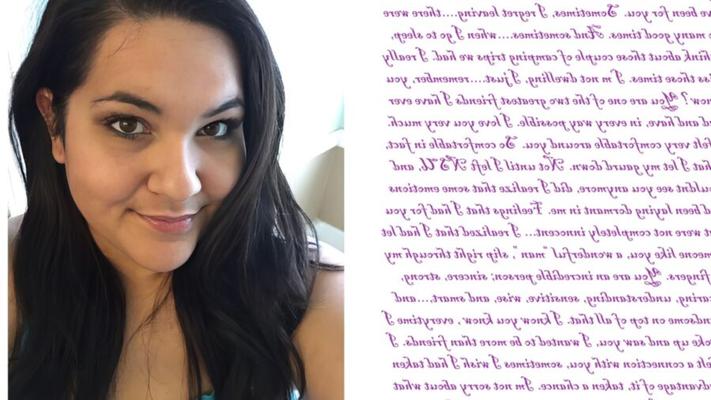 ve been for you. Sometimes, I regret leaving....there were
many good times. And sometimes....when I go to sleep,
hink about those couple of camping trips we had. I really
iss those times. I'm not dwelling, I just....remember, you
now? You are one of the two greatest friends I have ever
ad and have, in every way possible. I love you very much.
felt very comfortable around you. So comfortable, in fact,
hat I let my gaurd down. Not until I left NSU, and
ouldnt see you anymore, did I realize that some emotions
ad been laying dormant in me. Feelings that I had for you
at were not completely innocent... I realized that I had let
omeone like you, a wonderful "man", slip right through my
fingers. You are an incredible person; sincere, strong,
aring, understanding, sensitive, wise, and smart,...and
andsome on top of all that. I know you know, everytime I
oke up and saw you, I wanted to be more than friends. I
elt a connection with you, sometimes I wish I had taken
dvantage of it, taken a chance. I'm not sorry about what